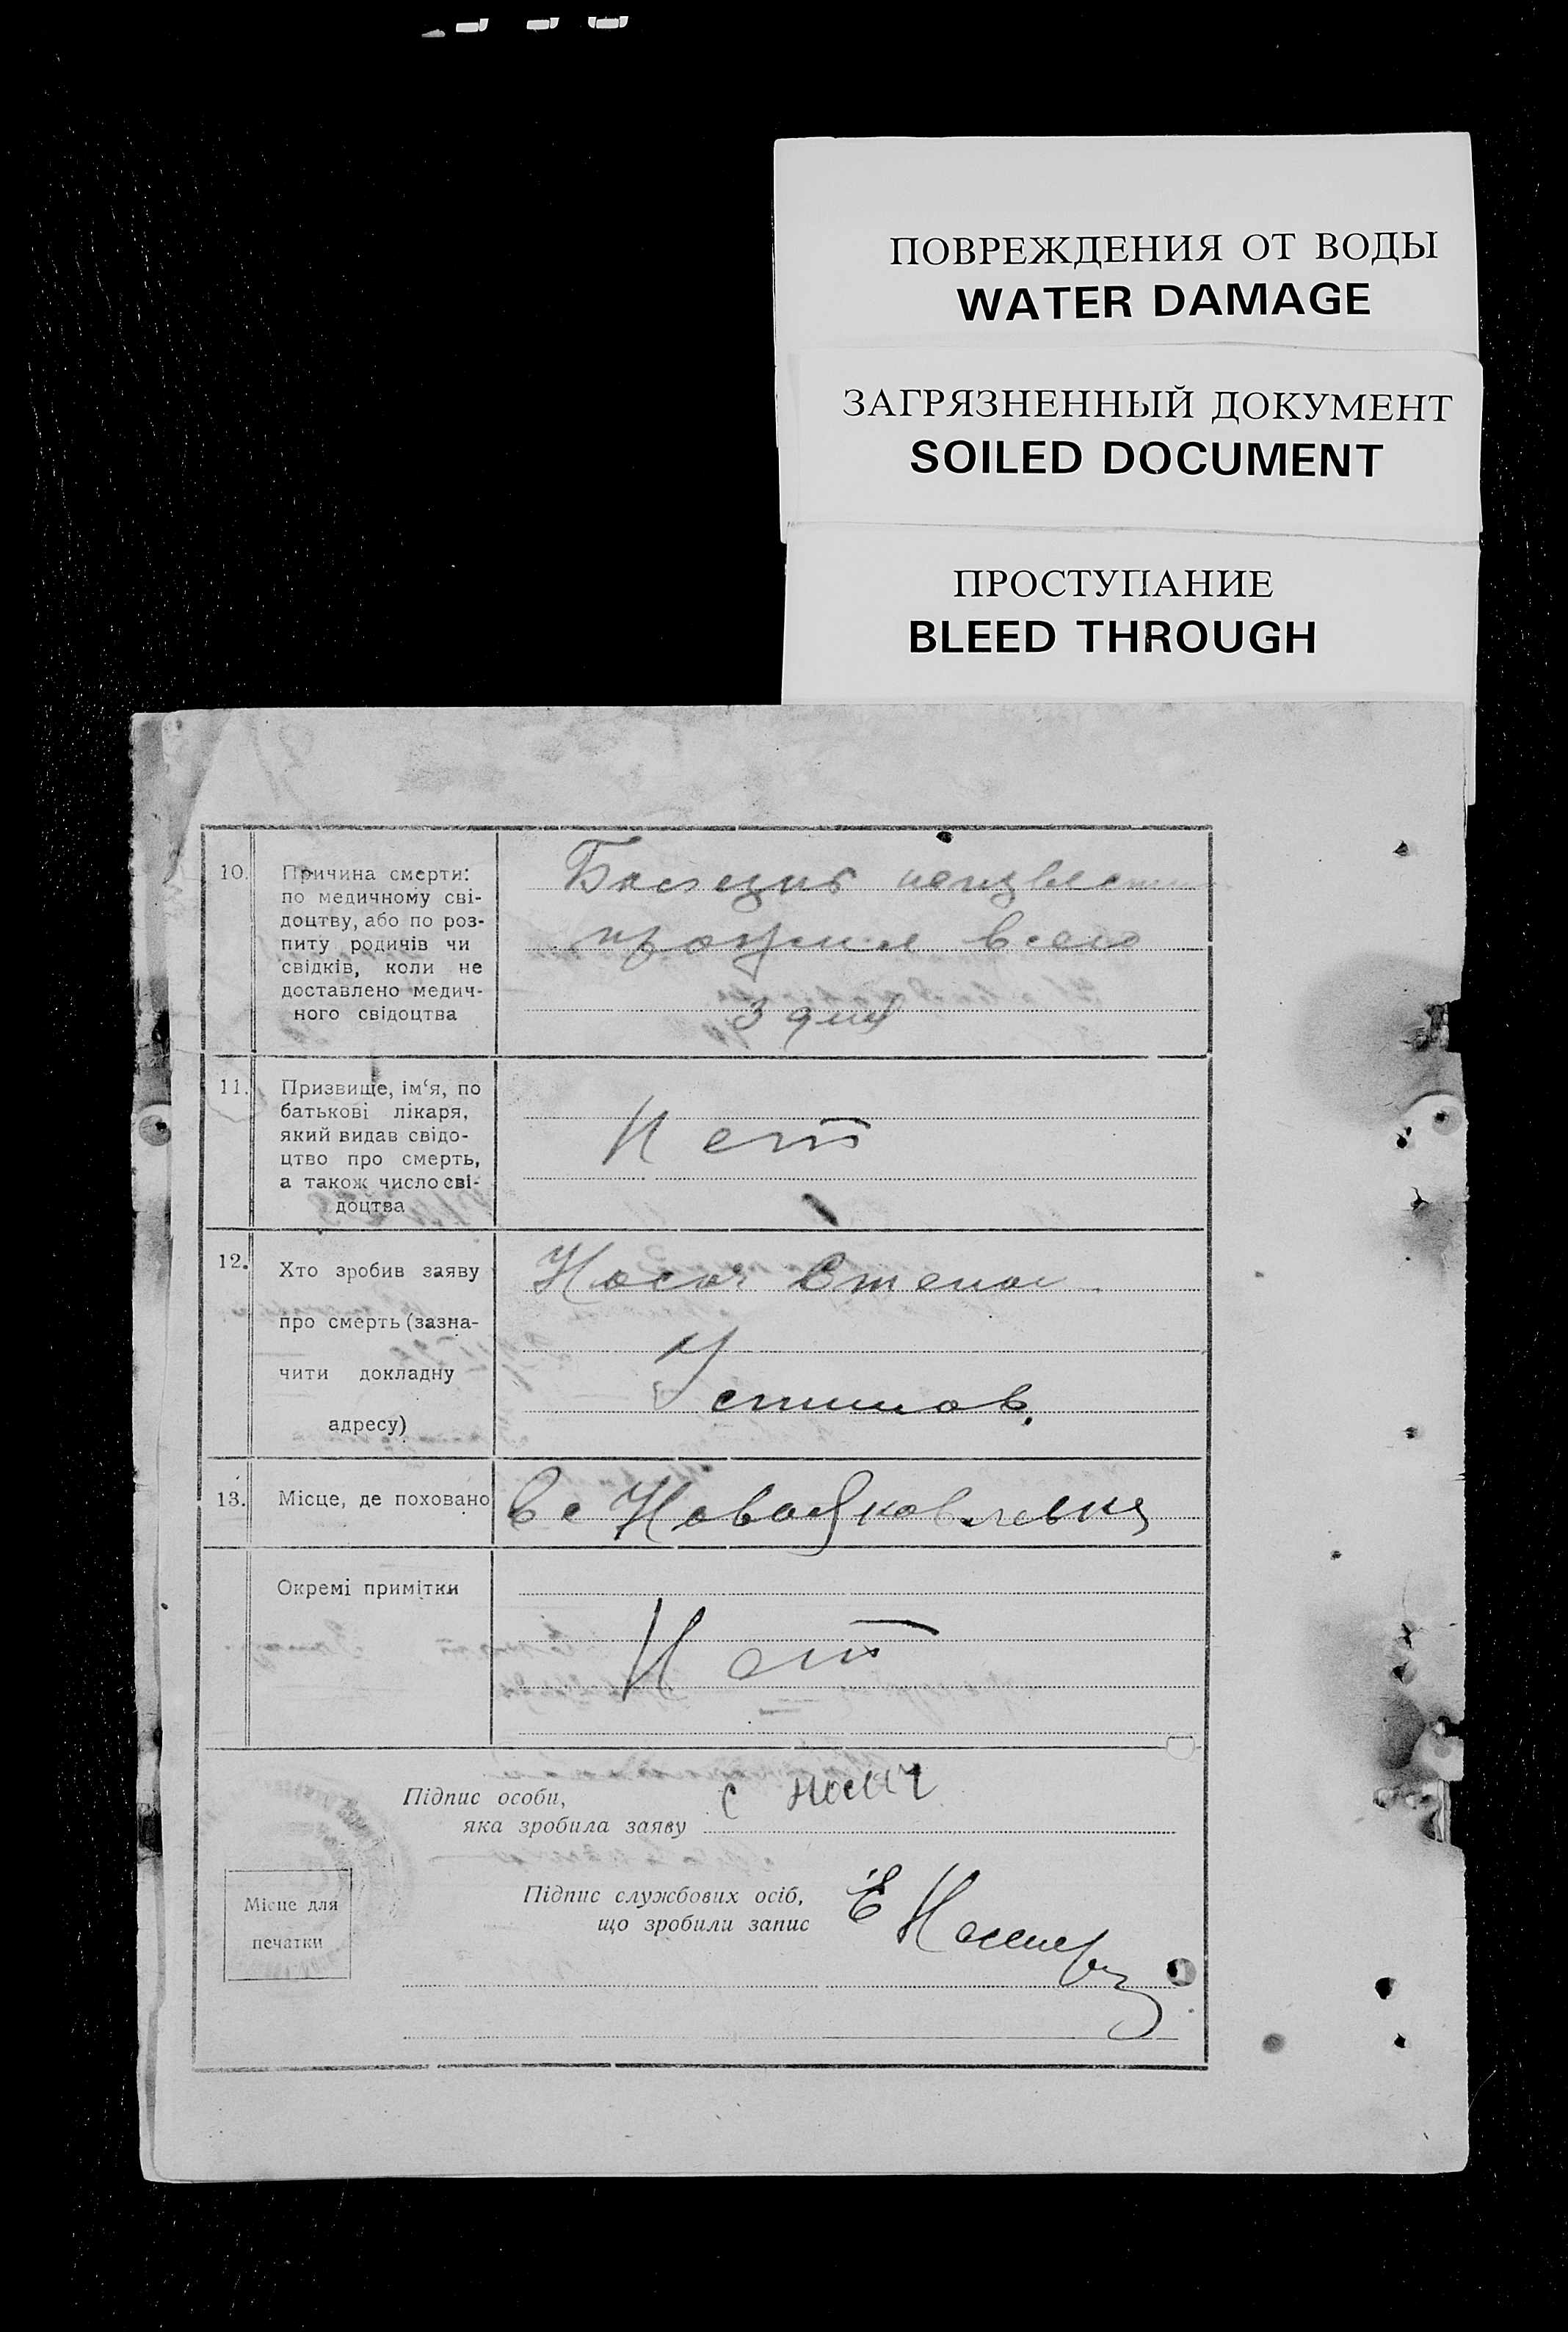 ПОВРЕЖДЕНИЯ ОТ ВОДЫ
WATER DAMAGE
ЗАГРЯЗНЕННЫЙ ДОКУМЕНТ
SOILED DOCUMENT
ПРОСТУПАНИЕ
BLEED THROUGH
10. Причина смерти:
по медичному сві-
доцтву, або по роз-
питу родичів чи
свідків, коли не
доставлено медич-
ного свідоцтва
всего
3 дня
11. Призвище, ім‘я, по
батькові лікаря,
який видав свідо-
цтво про смерть,
а також число сві-
доцтва
Нет
12. Хто зробив заяву
про смерть (зазна-
чити докладну
адресу)
Носач Степан
Устинов.
13. Місце, де поховано
в с НовоЯковлевке
Окремі примітки
Нет
Підпис особи,
яка зробила заяву
с носач
Місце для
печатки
Підпис службових осіб,
що зробили запис
Е